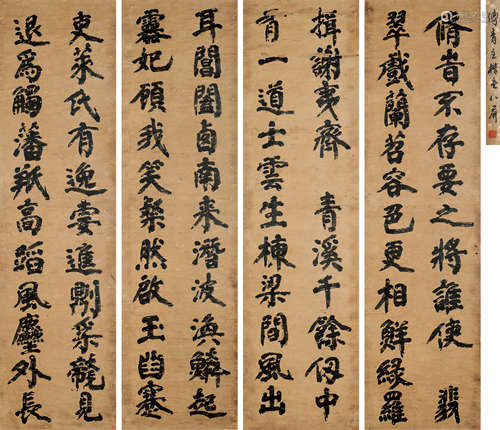 傅青主楷書八屏
脩旹不存要之將誰使 翡
翠戲蘭苕容色更相鮮綠羅
揖謝夷齊 青溪千餘仞中
有一道士雲生棟梁間風出
耳閶闔卥南來潛波渙鱗起
靈妃顧我笑粲然啟玉齒蹇
吏萊氏有逸妻進則保龍見
退為觸藩羝高蹈風塵外長